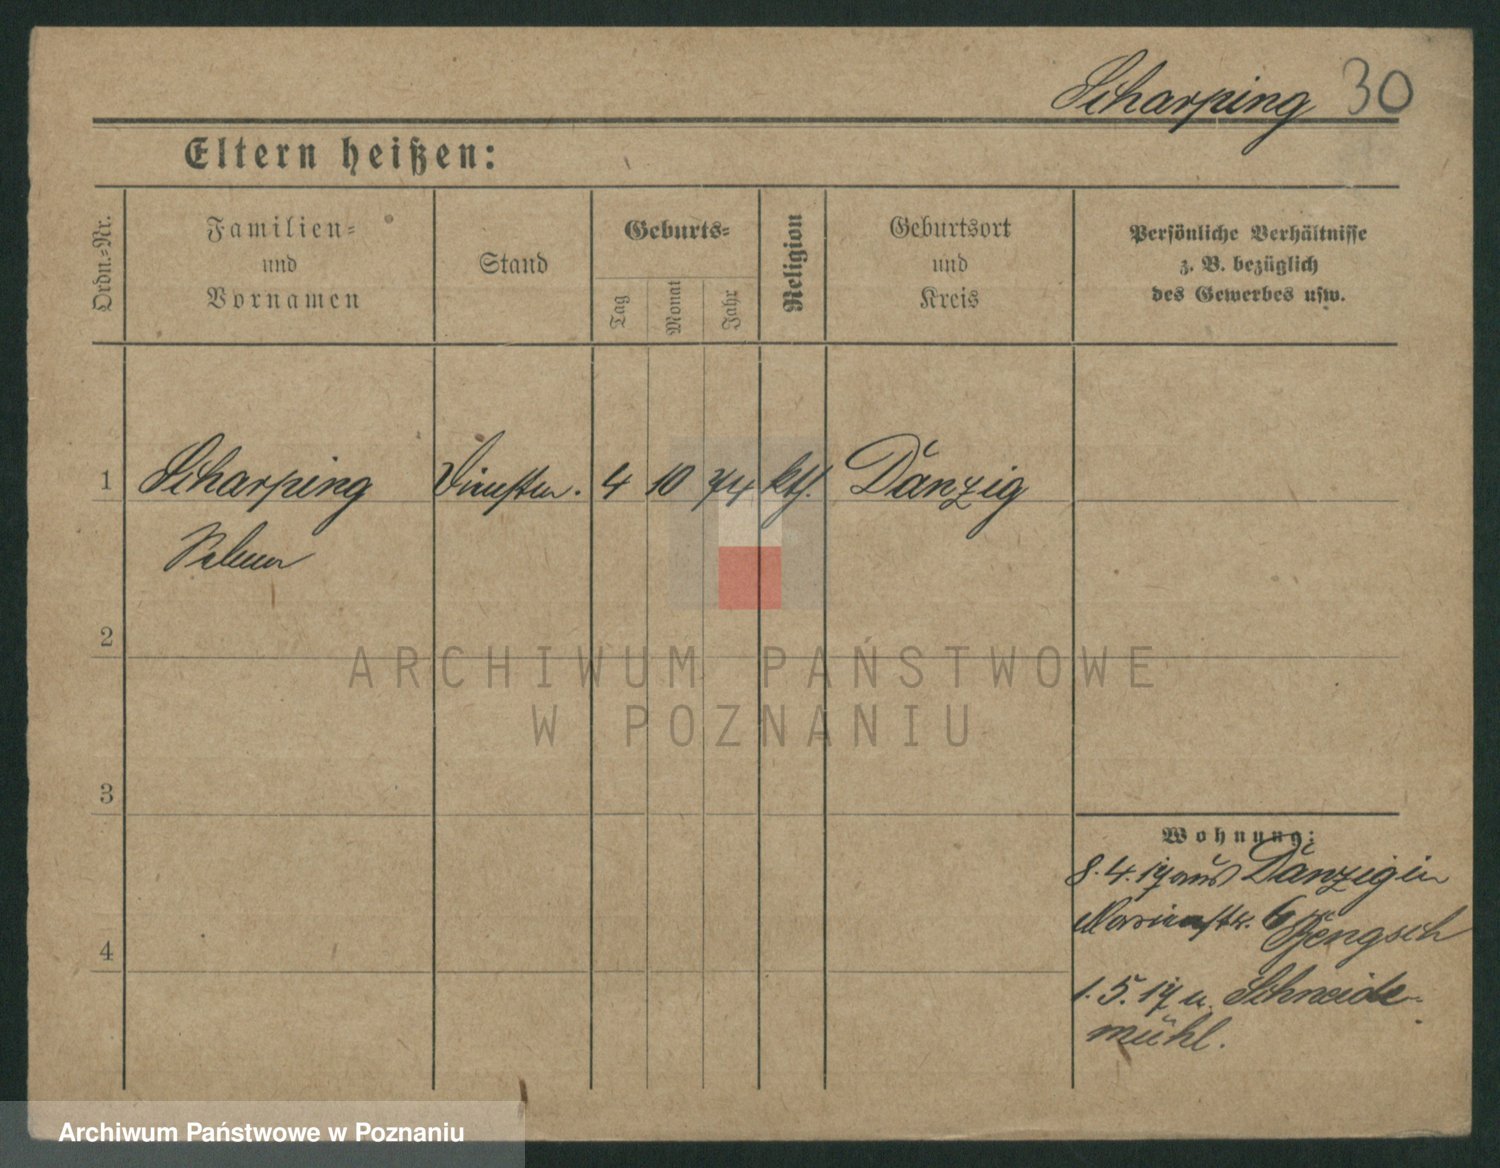 Scharping 30
Eltern heißen:
Ordn.-Nr.
Familien-
und
Vornamen
Stand
Geburts-
Tag
Monat
Jahr
Religion
Geburtsort
und
Kreis
Persönliche Verhältnisse
z. B. bezüglich
des Gewerbes usw.
1 Scharping 4 10 74 kth. Danzig
2
ARCHIWUM PAŃSTWOWE
W POZNANIU
3
Wohnung:
8.4.17 aus Danzig in
4
1.5.17 n. Schneide-
mühl.
Archiwum Państwowe w Poznaniu